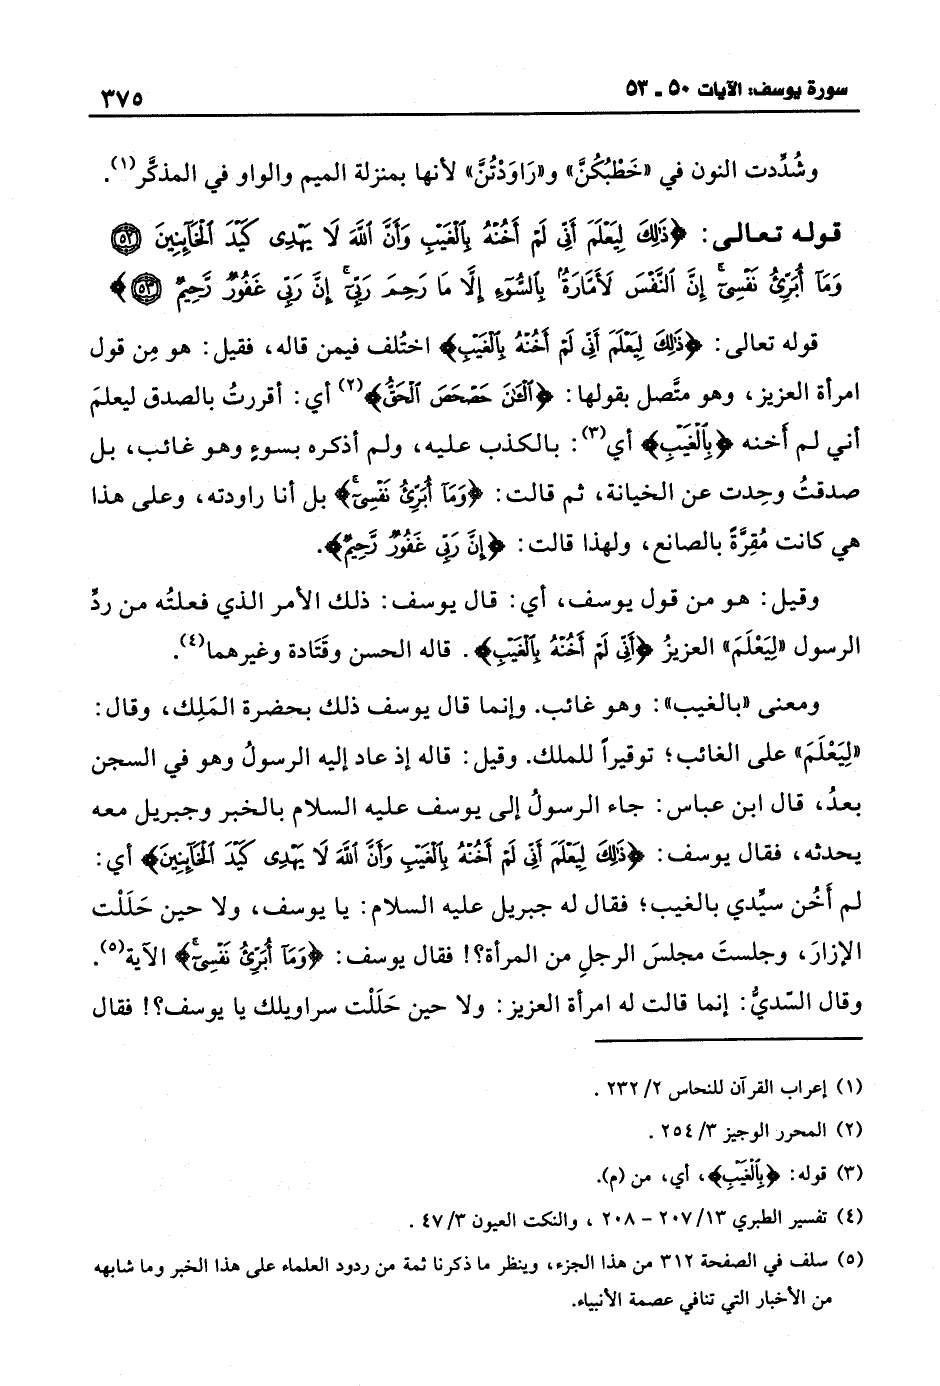 سورة يوسف: الآيات ٥٠ ـ ٥٣
٣٧٥
وشُدِّدت النون في «خَطْبُكُنَّ» و«رَاوَدْتُنَّ» لأنها بمنزلة الميم والواو في المذكَّر(١).
قوله تعالى: ﴿ذَٰلِكَ لِيَعْلَمَ أَنِّي لَمْ أَخُنْهُ بِالْغَيْبِ وَأَنَّ اللَّهَ لَا يَهْدِي كَيْدَ الْخَائِنِينَ ۝٥٢
وَمَا أُبَرِّئُ نَفْسِي ۚ إِنَّ النَّفْسَ لَأَمَّارَةٌ بِالسُّوءِ إِلَّا مَا رَحِمَ رَبِّي ۚ إِنَّ رَبِّي غَفُورٌ رَّحِيمٌ ۝٥٣﴾
قوله تعالى: ﴿ذَٰلِكَ لِيَعْلَمَ أَنِّي لَمْ أَخُنْهُ بِالْغَيْبِ﴾ اختُلف فيمن قاله، فقيل: هو مِن قول
امرأة العزيز، وهو متَّصل بقولها: ﴿الْآنَ حَصْحَصَ الْحَقُّ﴾(٢) أي: أقررتُ بالصدق ليعلمَ
أني لم أَخنه ﴿بِالْغَيْبِ﴾ أي(٣): بالكذب عليه، ولم أذكره بسوءٍ وهو غائب، بل
صدقتُ وحِدت عن الخيانة، ثم قالت: ﴿وَمَا أُبَرِّئُ نَفْسِي ۚ﴾ بل أنا راودته، وعلى هذا
هي كانت مُقِرَّةً بالصانع، ولهذا قالت: ﴿إِنَّ رَبِّي غَفُورٌ رَّحِيمٌ﴾.
وقيل: هو من قول يوسف، أي: قال يوسف: ذلك الأمر الذي فعلتُه من ردِّ
الرسول «لِيَعْلَمَ» العزيزُ ﴿أَنِّي لَمْ أَخُنْهُ بِالْغَيْبِ﴾. قاله الحسن وقَتَادة وغيرهما(٤).
ومعنى «بالغيب»: وهو غائب. وإنما قال يوسف ذلك بحضرة المَلِك، وقال:
«لِيَعْلَمَ» على الغائب؛ توقيراً للملك. وقيل: قاله إذ عاد إليه الرسولُ وهو في السجن
بعدُ، قال ابن عباس: جاء الرسولُ إلى يوسف عليه السلام بالخبر وجبريل معه
يحدثه، فقال يوسف: ﴿ذَٰلِكَ لِيَعْلَمَ أَنِّي لَمْ أَخُنْهُ بِالْغَيْبِ وَأَنَّ اللَّهَ لَا يَهْدِي كَيْدَ الْخَائِنِينَ﴾ أي:
لم أَخُن سيِّدي بالغيب؛ فقال له جبريل عليه السلام: يا يوسف، ولا حين حَلَلْت
الإزارَ، وجلستَ مجلسَ الرجلِ من المرأة؟! فقال يوسف: ﴿وَمَا أُبَرِّئُ نَفْسِي ۚ﴾ الآية(٥).
وقال السّديُّ: إنما قالت له امرأة العزيز: ولا حين حَلَلْت سراويلك يا يوسف؟! فقال
(١) إعراب القرآن للنحاس ٢/ ٢٣٢ .
(٢) المحرر الوجيز ٣/ ٢٥٤ .
(٣) قوله: ﴿بِالْغَيْبِ﴾، أي، من (م).
(٤) تفسير الطبري ١٣/ ٢٠٧ – ٢٠٨ ، والنكت العيون ٣/ ٤٧ .
(٥) سلف في الصفحة ٣١٢ من هذا الجزء، وينظر ما ذكرنا ثمة من ردود العلماء على هذا الخبر وما شابهه
من الأخبار التي تنافي عصمة الأنبياء.